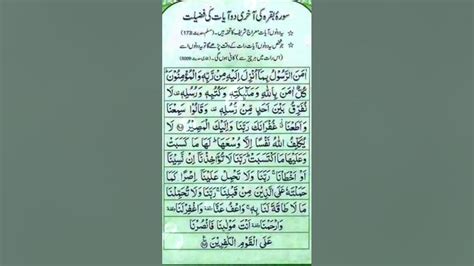 سورۂ بقرہ کی آخری دو آیات کی فضیلت
یہ دونوں آیات معراج شریف کا تحفہ ہیں۔ (مسلم، حدیث: 173)
شخص یہ دونوں آیات رات کے وقت پڑھے گا تو یہ اسے
(اس رات میں ہر چیز سے) کافی ہوں گی۔
اٰمَنَ الرَّسُوْلُ بِمَاۤ اُنْزِلَ اِلَیْهِ مِنْ رَّبِّهٖ وَ الْمُؤْمِنُوْنَ ؕ
كُلٌّ اٰمَنَ بِاللّٰهِ وَ مَلٰٓىِٕكَتِهٖ وَ كُتُبِهٖ وَ رُسُلِهٖ ۫ لَا
نُفَرِّقُ بَیْنَ اَحَدٍ مِّنْ رُّسُلِهٖ ۫ وَ قَالُوْا سَمِعْنَا
وَ اَطَعْنَا ٘ غُفْرَانَكَ رَبَّنَا وَ اِلَیْكَ الْمَصِیْرُ لَا
یُكَلِّفُ اللّٰهُ نَفْسًا اِلَّا وُسْعَهَا ؕ لَهَا مَا كَسَبَتْ
وَ عَلَیْهَا مَا اكْتَسَبَتْ ؕ رَبَّنَا لَا تُؤَاخِذْنَاۤ اِنْ نَّسِیْنَاۤ
اَوْ اَخْطَاْنَا ۚ رَبَّنَا وَ لَا تَحْمِلْ عَلَیْنَاۤ اِصْرًا كَمَا
حَمَلْتَهٗ عَلَى الَّذِیْنَ مِنْ قَبْلِنَا ۚ رَبَّنَا وَ لَا تُحَمِّلْنَا
مَا لَا طَاقَةَ لَنَا بِهٖ ۚ وَ اعْفُ عَنَّا ٙ وَ اغْفِرْ لَنَا ٙ
وَ ارْحَمْنَا ٙ اَنْتَ مَوْلٰىنَا فَانْصُرْنَا
عَلَى الْقَوْمِ الْكٰفِرِیْنَ